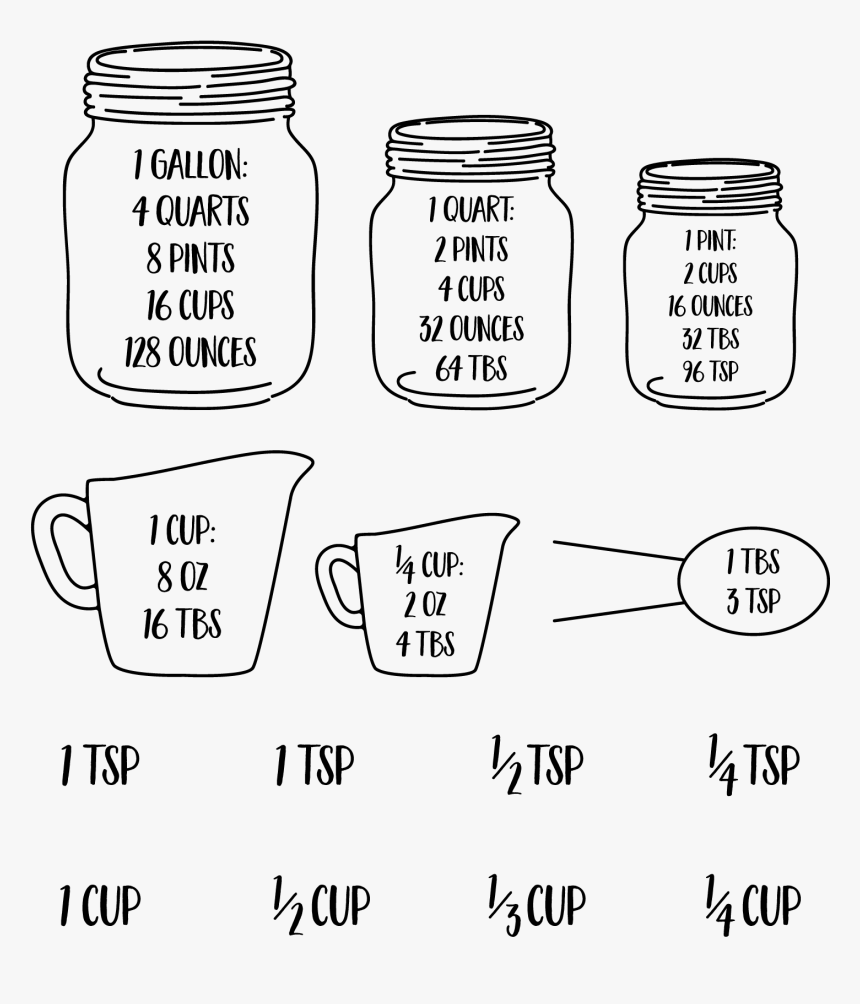 1 GALLON:
4 QUARTS
8 PINTS
16 CUPS
128 OUNCES
1 QUART:
2 PINTS
4 CUPS
32 OUNCES
64 TBS
1 PINT:
2 CUPS
16 OUNCES
32 TBS
96 TSP
1 CUP:
8 OZ
16 TBS
1/4 CUP:
2 OZ
4 TBS
1 TBS
3 TSP
1 TSP
1 TSP
1/2 TSP
1/4 TSP
1 CUP
1/2 CUP
1/3 CUP
1/4 CUP